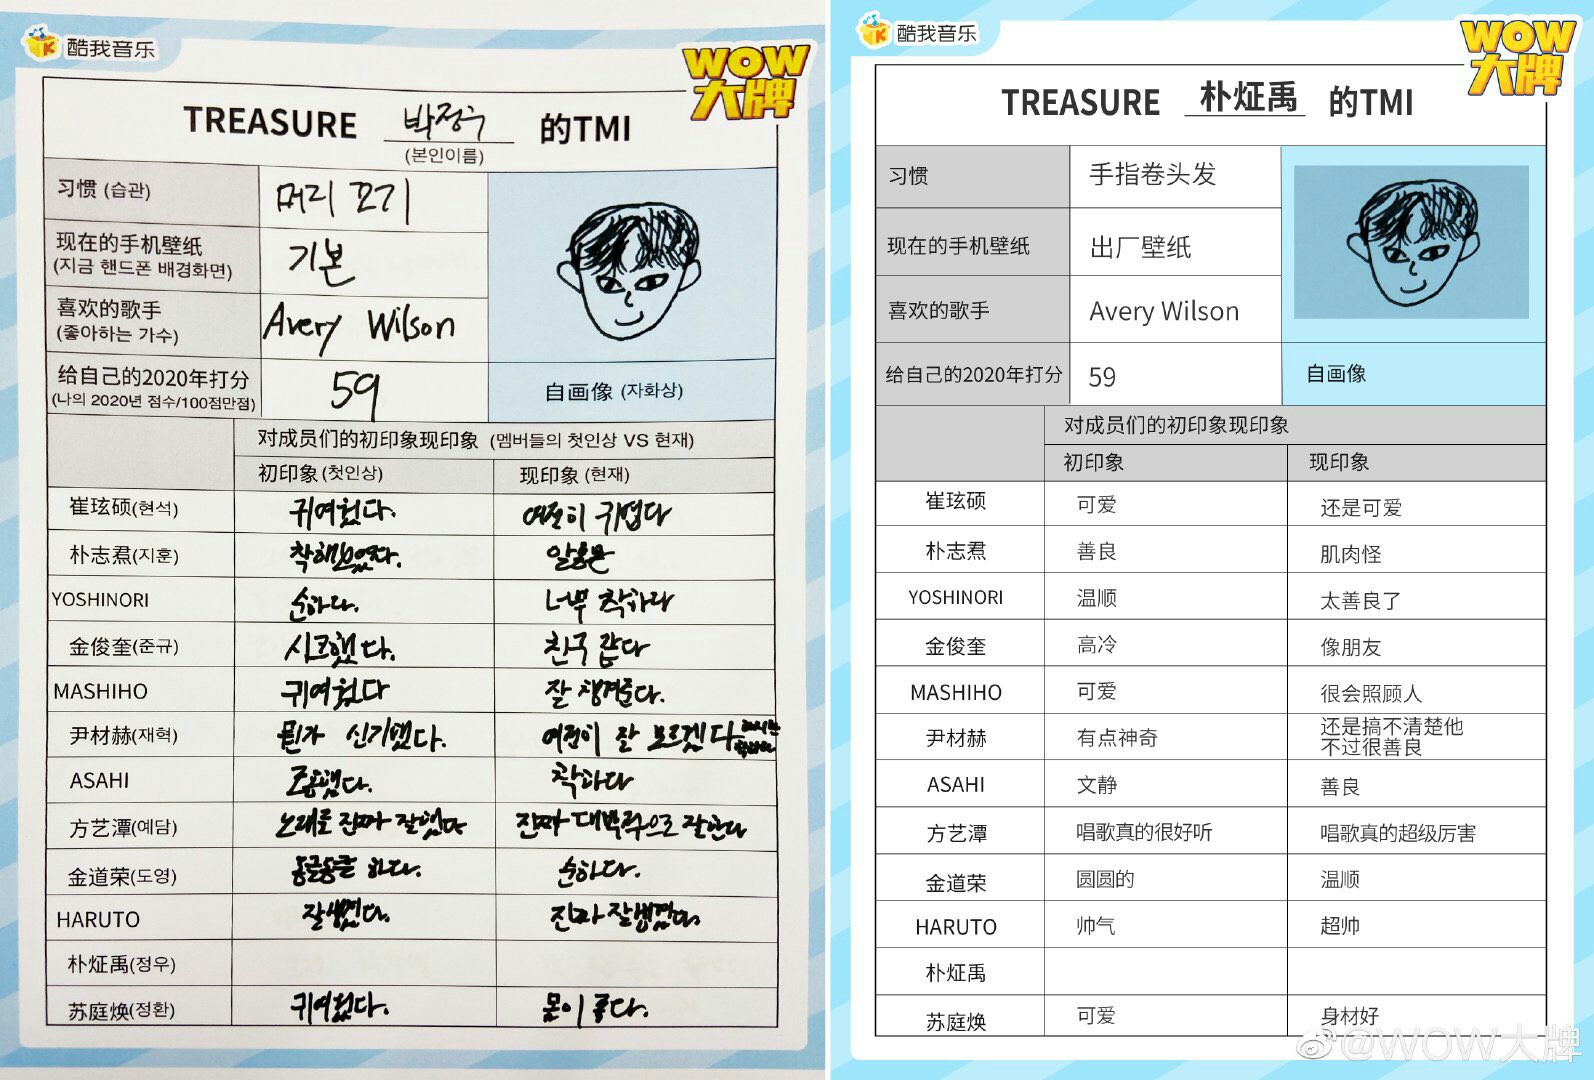 酷我音乐
WOW
大牌
TREASURE 박정우 的TMI
(본인이름)
习惯 (습관)
머리 꼬기
现在的手机壁纸
(지금 핸드폰 배경화면)
기본
喜欢的歌手
(좋아하는 가수)
Avery Wilson
给自己的2020年打分
(나의 2020년 점수/100점만점)
59
自画像 (자화상)
对成员们的初印象现印象 (멤버들의 첫인상 VS 현재)
初印象 (첫인상) 现印象 (현재)
崔玹硕(현석) 귀여웠다. 여전히 귀엽다
朴志焄(지훈) 착해보였다.
YOSHINORI 순하다. 너무 착하다
金俊奎(준규) 시크했다. 친구 같다
MASHIHO 귀여웠다 잘 챙겨준다.
尹材赫(재혁) 뭔가 신기했다. 여전히 잘 모르겠다
ASAHI 조용했다. 착하다
方艺潭(예담) 노래를 진짜 잘했다 진짜 대박적으로 잘한다
金道荣(도영) 동글동글 하다. 순하다.
HARUTO 잘생겼다. 진짜 잘생겼다.
朴炡禹(정우)
苏庭焕(정환) 귀여웠다. 몸이 좋다.
酷我音乐
WOW
大牌
TREASURE 朴炡禹 的TMI
习惯 手指卷头发
现在的手机壁纸 出厂壁纸
喜欢的歌手 Avery Wilson
给自己的2020年打分 59
自画像
对成员们的初印象现印象
初印象 现印象
崔玹硕 可爱 还是可爱
朴志焄 善良 肌肉怪
YOSHINORI 温顺 太善良了
金俊奎 高冷 像朋友
MASHIHO 可爱 很会照顾人
尹材赫 有点神奇 还是搞不清楚他
不过很善良
ASAHI 文静 善良
方艺潭 唱歌真的很好听 唱歌真的超级厉害
金道荣 圆圆的 温顺
HARUTO 帅气 超帅
朴炡禹
苏庭焕 可爱 身材好
@WOW大牌